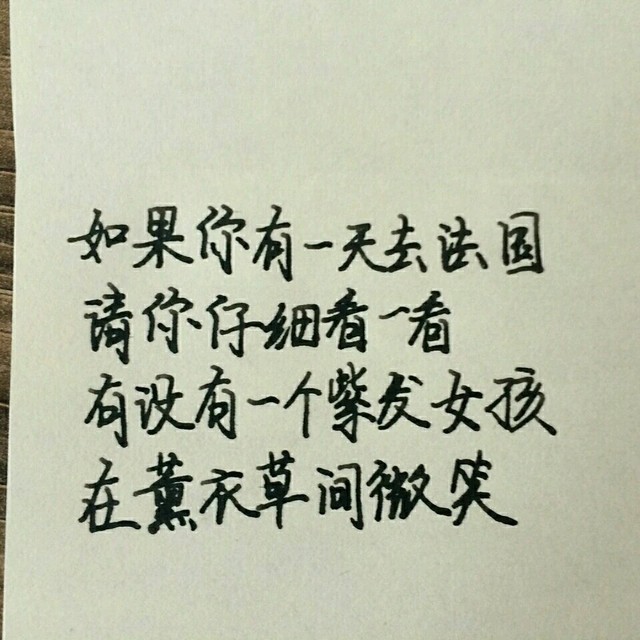 如果你有一天去法国
请你仔细看一看
有没有一个紫发女孩
在薰衣草间微笑